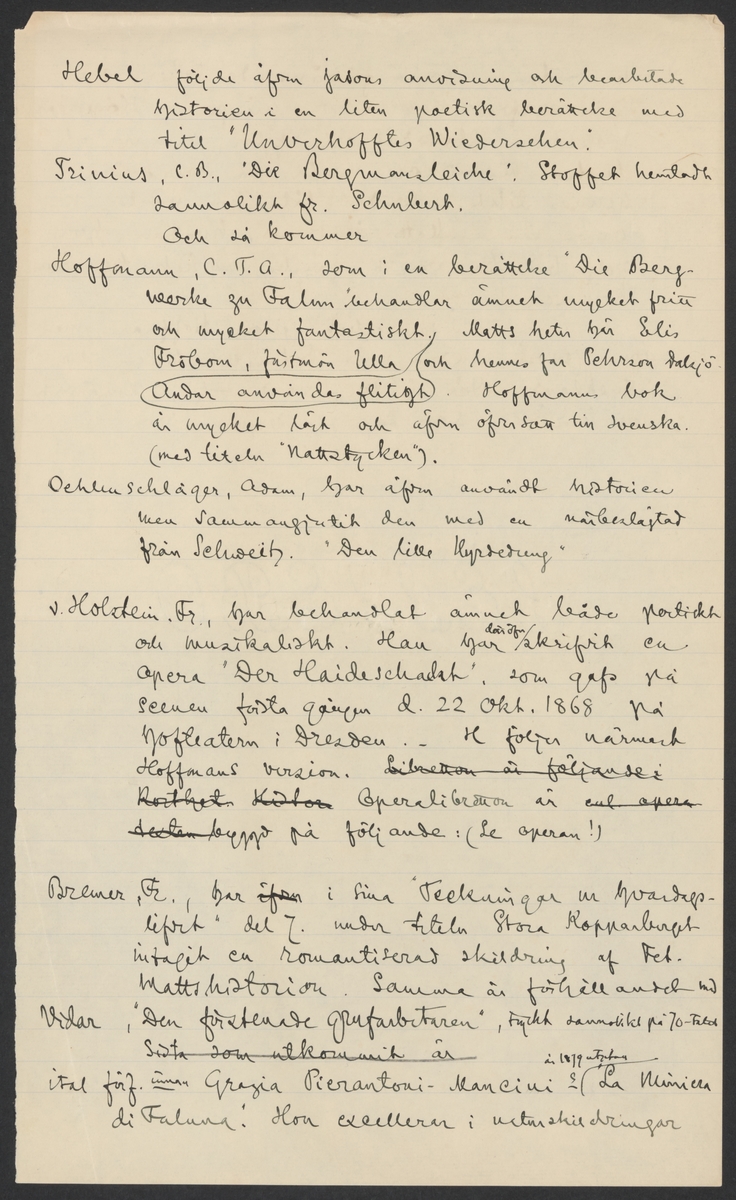 Hebel följde äfven Jasons anvisning och bearbetade
historien i en liten poetisk berättelse med
titel "Unverhofftes Wiedersehen".
Trinius, C.B., "Die Bergmansleiche". Stoffet hemtadt
sannolikt fr. Schubert.
Och så kommer
Hoffmann, C.T.A., som i en berättelse "Die Berg-
werke zu Falun" behandlar ämnet mycket fritt
och mycket fantastiskt. Matts heter här Elis
Fröbom, fästmön Ulla (och hennes far Pehrson Dalsjö.
Andar användas flitigt). Hoffmanns bok
är mycket läst och äfven öfversatt till svenska.
(med titeln "Nattstycken").
Oehlenschläger, Adam, har äfven användt historien
men sammangjutit den med en närbeslägtad
från Schweitz. "Den lille Hyrdedreng"
v. Holstein. Fr., har behandlat ämnet både poetiskt
och musikaliskt. Han har däröfver skrifvit en
opera "Der Haideschacht", som gafs på
scenen första gången d. 22 Okt. 1868 på
Hofteatern i Dresden. - H följer närmast
Hoffmans version. Libretton är följande:
Korthet. Histor Operalibretton är enl. opera
texten byggd på följande: (Se operan!)
Bremer, Fr., har äfven i sina "Teckningar ur hvardags-
lifvet" del 7. under titeln Stora Kopparberget
intagit en romantiserad skildring af Fet-
Mattshistorien. Samma är förhållandet med
Vidar, "Den förstenade Grufarbetaren", tryckt sannolikt på 70-talet
Sista som utkommit är
år 1879 utgifven
ital förf. innan Grazia Pierantoni-Mancini's ("La Miniera
di Faluna". Hon excellerar i naturskildringar